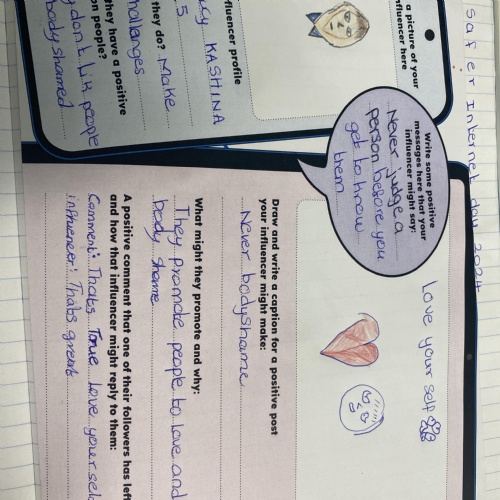 Safer Internet day 2024
a picture of your
influencer here
fluencer profile
KASHINA
5
they do? Make
hallanges
they have a positive
on people?
y don't lik people
bodyshamed
Write some positive
messages here that your
influencer might say:
Never judge a
person before you
get to know
them
Love your self
Draw and write a caption for a positive post
your influencer might make:
Never bodyshame
What might they promote and why:
They promote people to love and
body shame
A positive comment that one of their followers has left
and how that influencer might reply to them:
Comment: Thats True love your self
influencer: Thats great